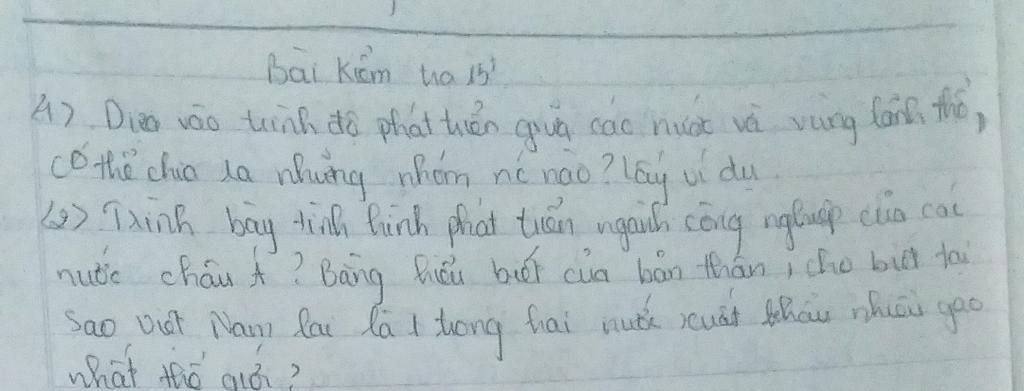 Bài kiểm tra 15'
1) Dựa vào trình độ phát triển giữa các nước và vùng lãnh thổ,
có thể chia ra những nhóm nc nào? Lấy ví dụ.
2) Trình bày tình hình phát triển ngành công nghiệp của các
nước châu Á? Bằng hiểu biết của bản thân, cho biết tại
sao Việt Nam lại là 1 trong hai nước xuất khẩu nhiều gạo
nhất thế giới?